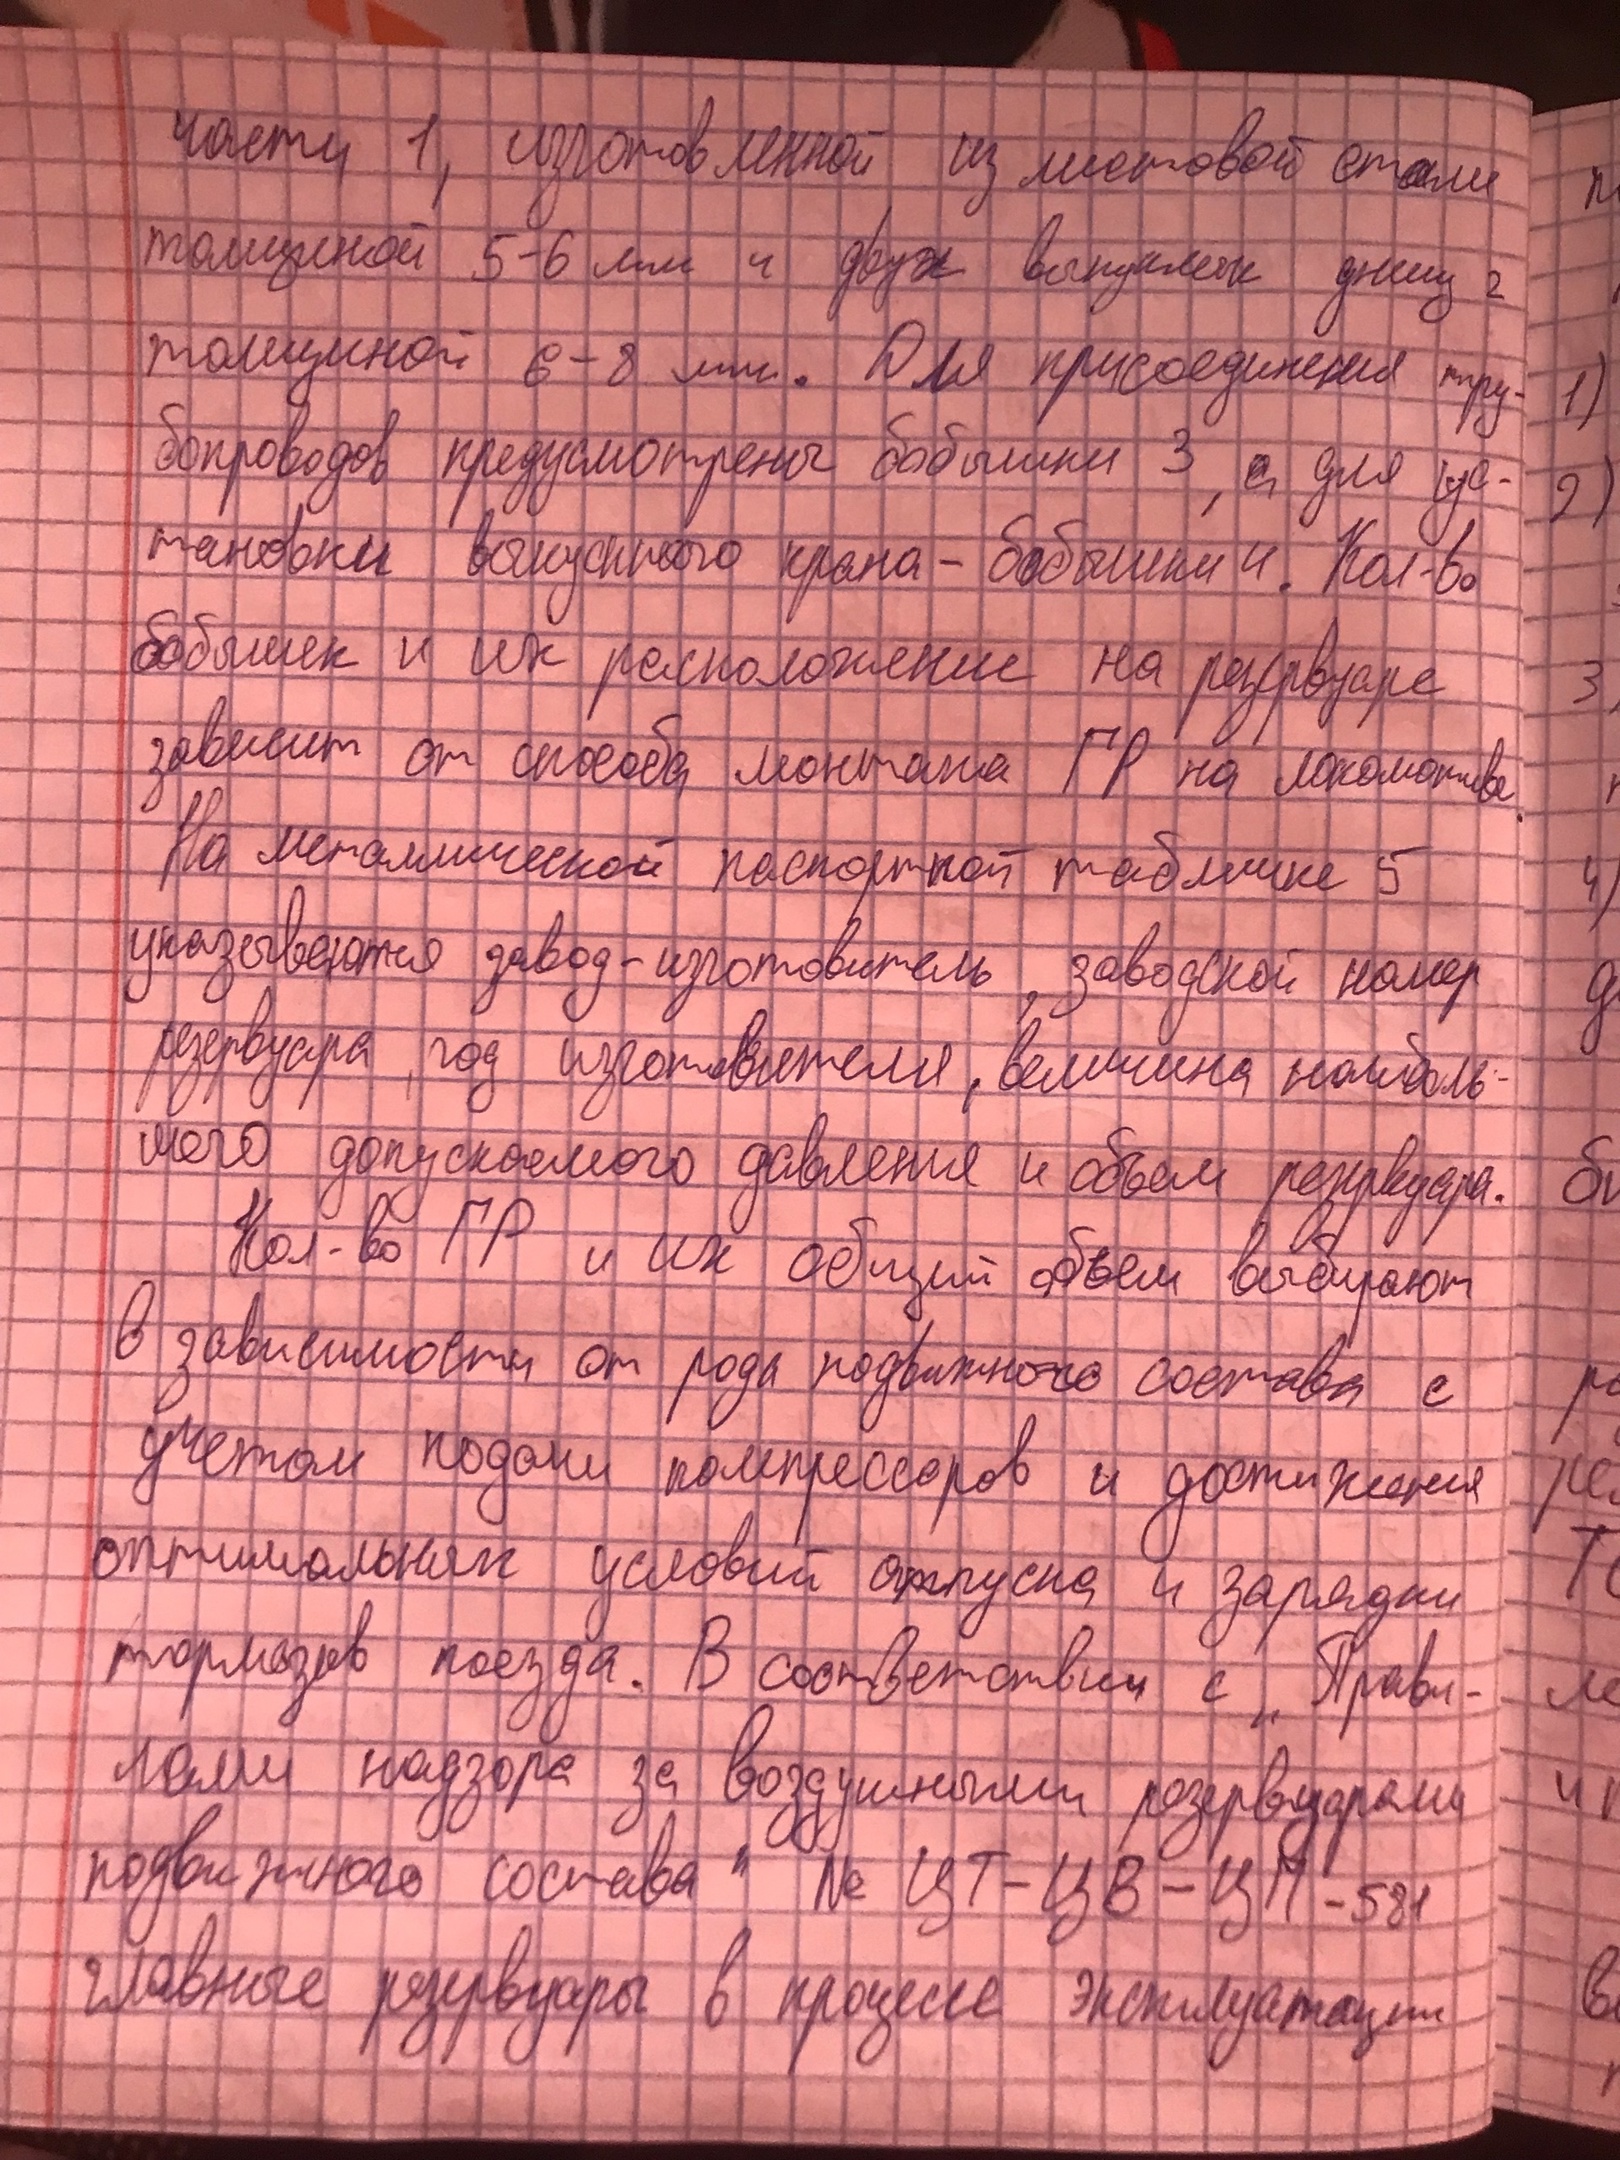 части 1, изготовленной из листовой стали
толщиной 5-6 мм и двух выпуклых днищ 2
толщиной 6-8 мм. Для присоединения тру-
бопроводов предусмотрены бобышки 3, а для ус-
тановки выпускного крана - бобышки 4. Кол-во
бобышек и их расположение на резервуаре
зависит от способа монтажа ГР на локомотиве.
На металлической паспортной табличке 5
указываются завод-изготовитель, заводской номер
резервуара, год изготовителя, величина наиболь-
шего допускаемого давления и объем резервуара.
Кол-во ГР и их общий объем выбирают
в зависимости от рода подвижного состава с
учетом подачи компрессоров и достижения
оптимальных условий отпуска и зарядки
тормозов поезда. В соответствии с „Прави-
лами надзора за воздушными резервуарами
подвижного состава" № ЦТ-ЦВ-ЦП-581
главные резервуары в процессе эксплуатации
1)
2)
3,
4)